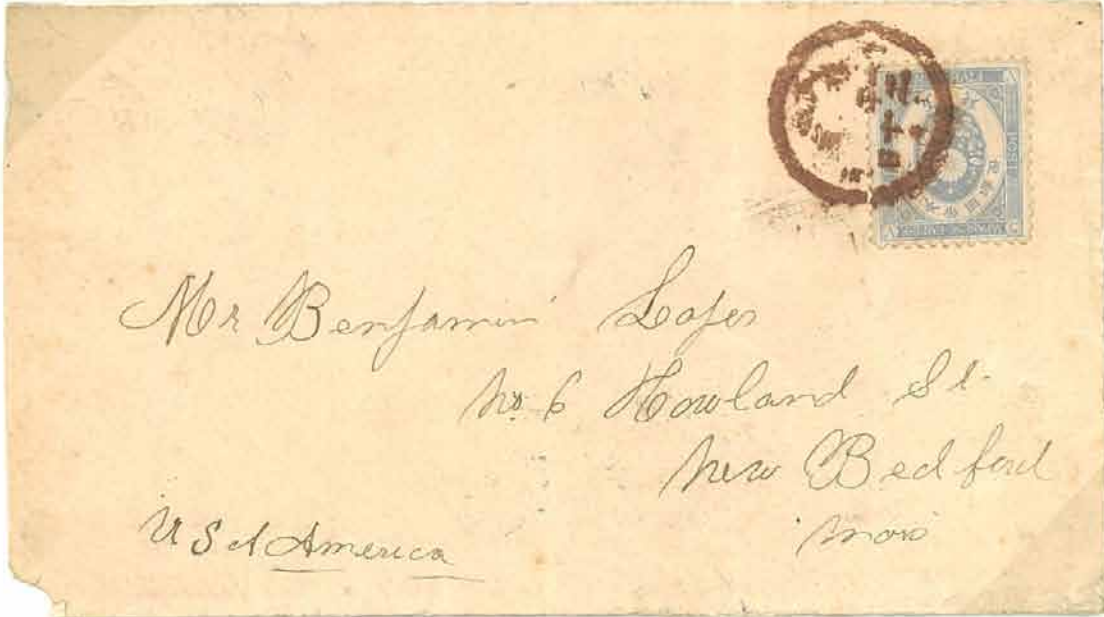 Mr Benjamin Lopes
No. 6 Howland St.
New Bedford
Mass
U S of America